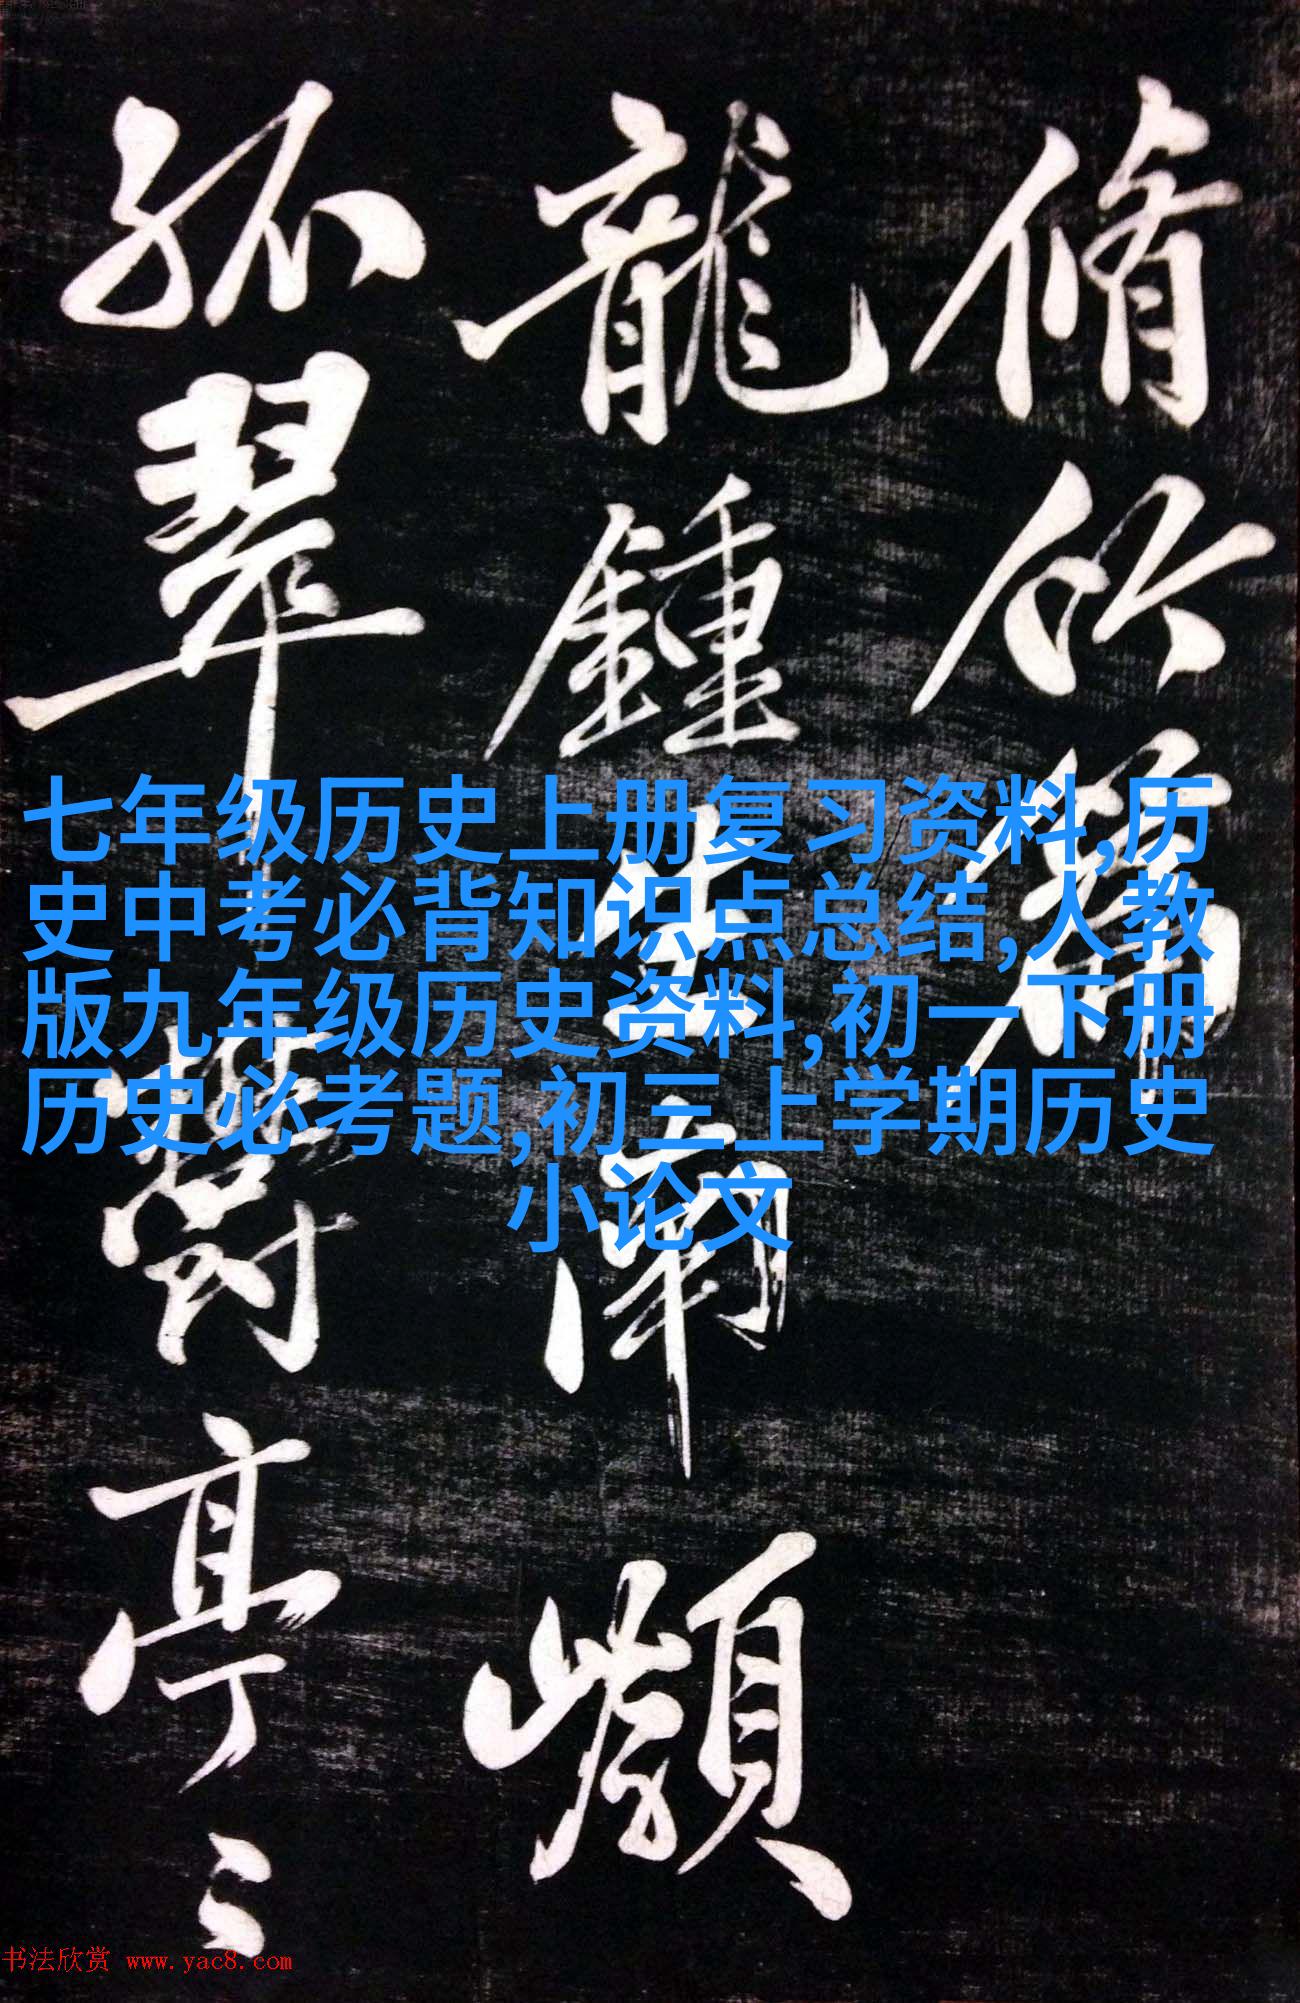 脩竹篇
龍鍾生南嶽
孤翠鬱亭亭
七年级历史上册复习资料,历
史中考必背知识点总结,人教
版九年级历史资料,初一下册
历史必考题,初三上学期历史
小论文
书法欣赏 www.yac8.com